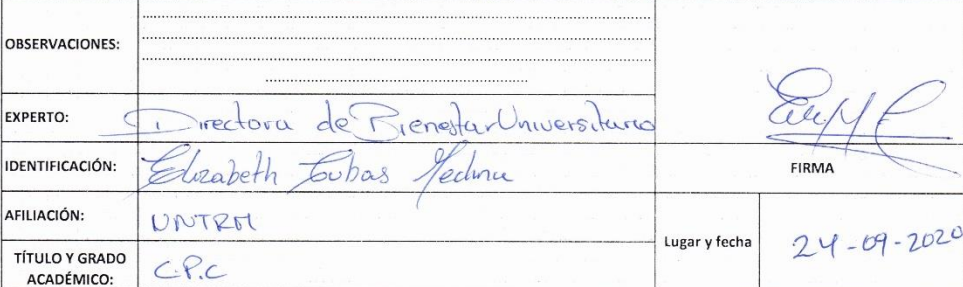 OBSERVACIONES:
EXPERTO: Directora de Bienestar Universitario
IDENTIFICACIÓN: Elizabeth Cubas Medina
FIRMA
AFILIACIÓN: UNTRM
Lugar y fecha 24-09-2020
TÍTULO Y GRADO
ACADÉMICO: C.P.C